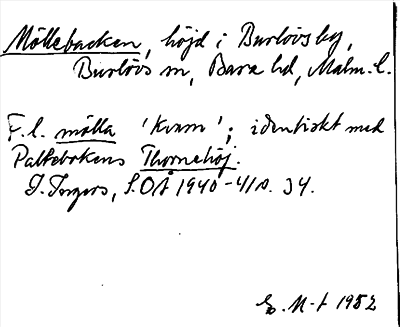 Möllebacken, höjd i Burlövs by,
Burlövs sn, Bara hd, Malm. l.
F. l. mölla 'kvarn'; identiskt med
Paltebokens Thornehöj.
I. Ingers, S.O.Å 1940-41 s. 34.
E. N-t 1952